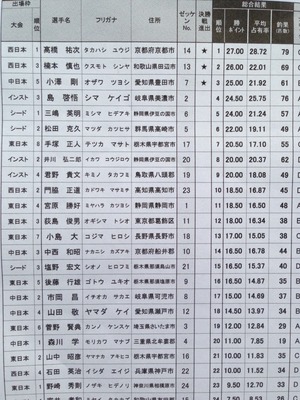 出場枠 総合結果
大会 順位 選手名 フリガナ 住所 ゼッケンNo. 決勝戦進出 順位 勝ポイント 平均占有率 釣果(匹数)
西日本 1 高橋 祐次 タカハシ ユウジ 京都府京都市 14 ★ 1 27.00 28.72 79
西日本 6 楠本 慎也 クスモト シンヤ 和歌山県田辺市 13 ★ 2 26.00 22.01 69
中日本 5 小澤 剛 オザワ ツヨシ 愛知県豊田市 7 ★ 3 25.00 21.92 61
インスト 3 島 啓悟 シマ ケイゴ 岐阜県美濃市 2 4 24.50 25.75 76
シード 3 三嶋 英明 ミシマ ヒデアキ 静岡県伊豆の国市 4 5 24.00 21.56 57
シード 5 松田 克久 マツダ カツヒサ 静岡県伊豆の国市 5 6 22.00 19.11 49
東日本 8 手塚 正人 テツカ マサト 栃木県宇都宮市 17 7 20.00 20.64 58
インスト 2 井川 弘二郎 イカワ コウジロウ 静岡県伊豆市 20 8 20.00 20.37 62
インスト 4 君野 貴文 キミノ タカフミ 鳥取県八頭郡 19 9 20.00 20.20 58
西日本 2 門脇 正道 カドワキ マサミチ 高知県高知市 23 10 18.50 16.87 45
東日本 4 宮原 勝好 ミヤハラ カツヨシ 静岡県静岡市 1 11 18.50 16.75 48
東日本 3 荻島 俊男 オギシマ トシオ 東京都葛飾区 11 12 18.00 16.34 38
東日本 7 小島 大 コジマ ヒロシ 栃木県さくら市 18 13 17.00 15.05 38
中日本 3 中西 和昭 ナカニシ カズアキ 京都府船井郡 10 14 16.50 16.78 44
シード 3 塩野 宏文 シオノ ヒロフミ 栃木県那須烏山市 21 15 16.50 15.37 40
東日本 5 後藤 行雄 ゴトウ ユキオ 栃木県那須塩山市 9 16 16.50 15.30
中日本 2 市岡 昌 イチオカ サカエ 岐阜県可児市 8 17 15.00 14.69 37
中日本 4 山田 敬 ヤマダ ケイ 愛知県瀬戸市 12 18 14.50 14.87 34
東日本 6 菅野 賢典 カンノ ケンスケ 埼玉県さいたま市 3 19 12.00 12.84 29
中日本 1 森川 学 モリカワ マナブ 三重県北牟婁郡 6 20 11.00 11.94 33
東日本 2 山中 昭彦 ヤマナカ アキヒコ 栃木県宇都宮市 22 21 10.00 11.82 35
西日本 4 石田 英治 イシダ エイジ 兵庫県神戸市 16 22 10.00 11.33 34
東日本 1 野崎 秀則 ノザキ ヒデノリ 神奈川県相模原市 24 23 9.50 12.70 33